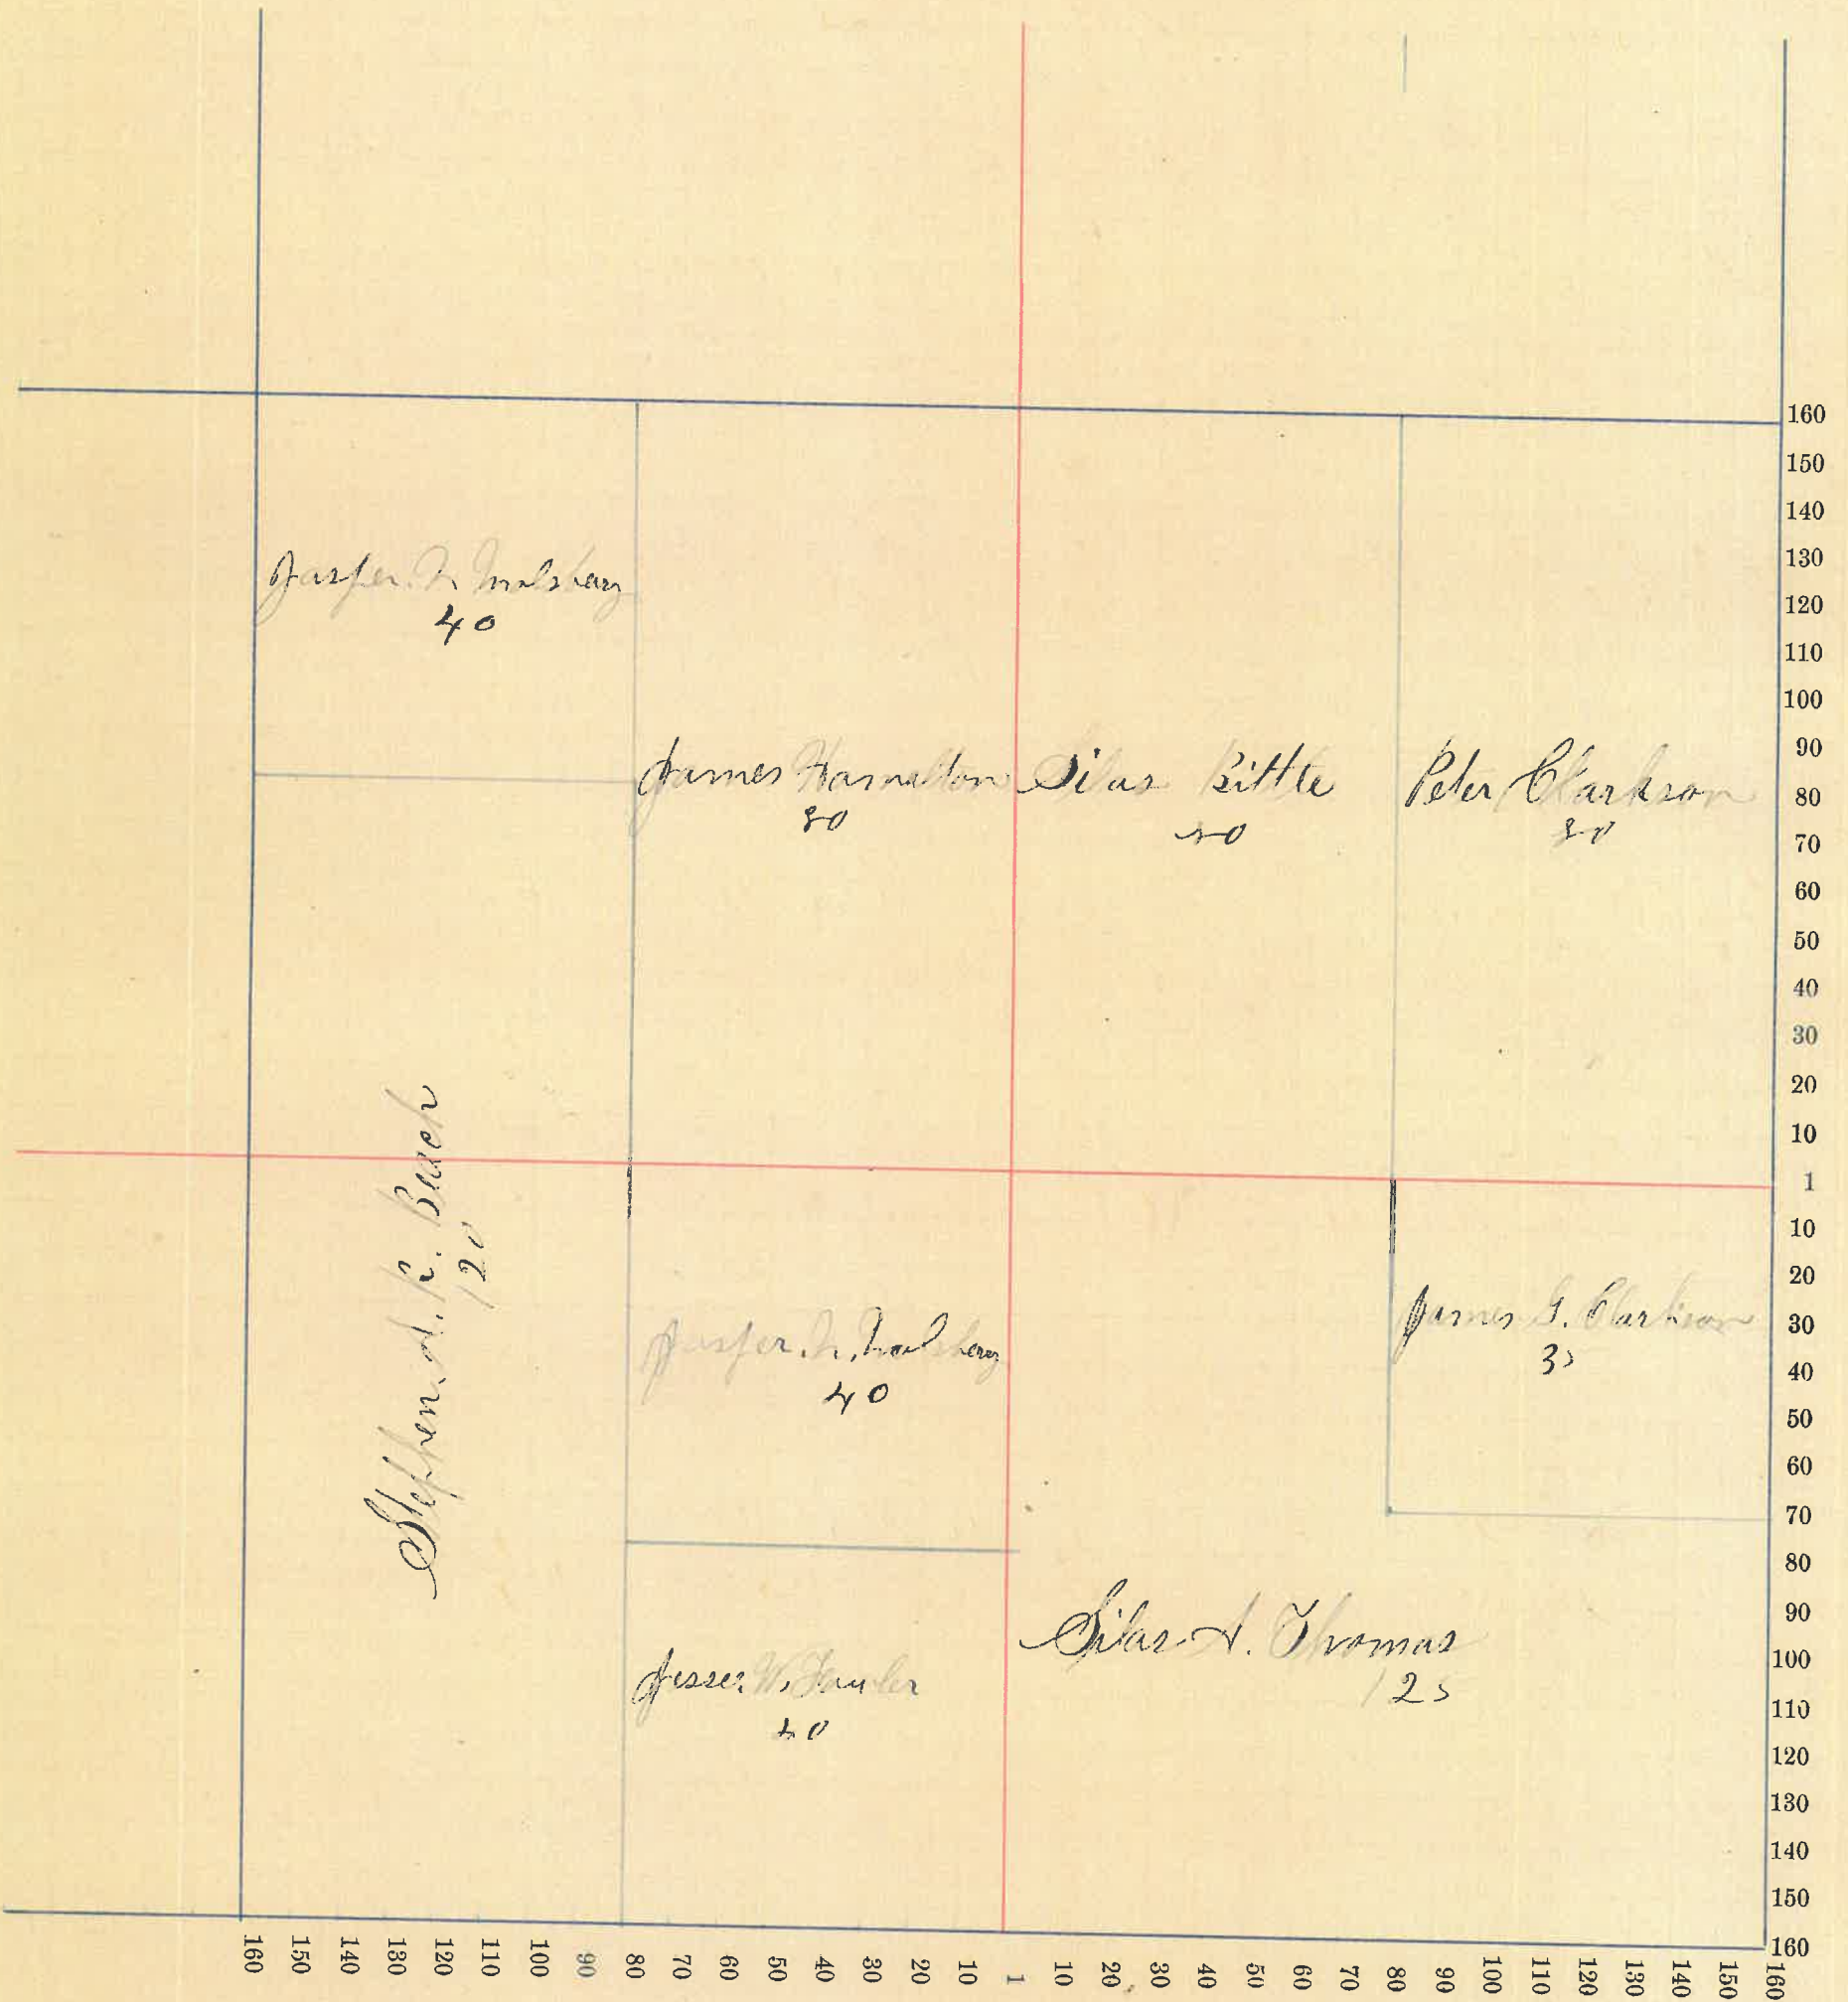 Jasper. N.
40
James Hamalton
80
Silas Kittle
80
Peter Clarkson
80
Stephen. A. R. Beach
120
Jasper. N.
40
James G. Clarkson
35
Jesser. W. Fauler
40
Silas A. Thomas
125
160
150
140
130
120
110
100
90
80
70
60
50
40
30
20
10
1
10
20
30
40
50
60
70
80
90
100
110
120
130
140
150
160
160 150 140 130 120 110 100 90 80 70 60 50 40 30 20 10 1 10 20 30 40 50 60 70 80 90 100 110 120 130 140 150 160